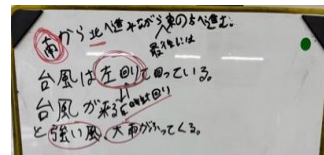 南から北へ進みながら東の方へ進む。
最後には
台風は左回りで回っている。
反時計回り
台風が来る
と強い風、大雨がふってくる。